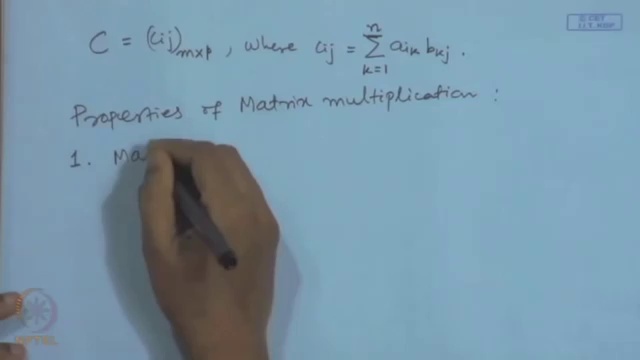 © CET
I.I.T. KGP
C = (cij)mxp, where cij = n∑k=1 aik bkj.
Properties of Matrix multiplication :
1. Ma
NPTEL